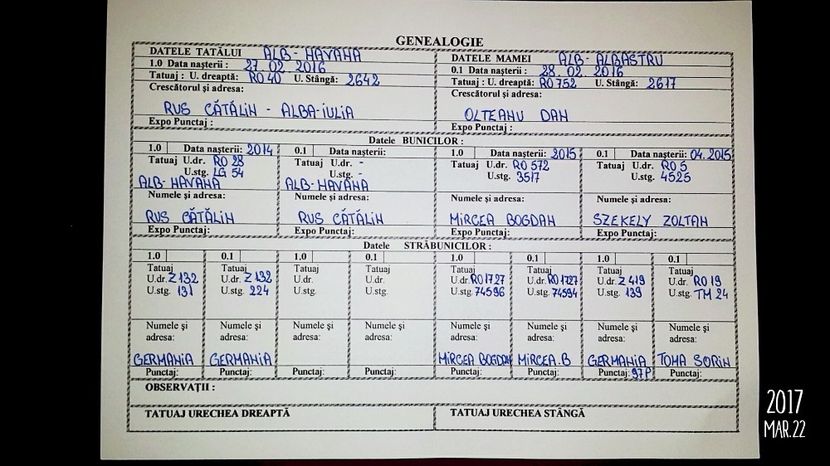 GENEALOGIE
DATELE TATĂLUI ALB-HAVANA
1.0 Data nașterii : 27.02.2016
Tatuaj : U. dreaptă: RO 40 U. Stângă: 2642
Crescătorul și adresa:
RUS CĂTĂLIN - ALBA-IULIA
Expo Punctaj :
DATELE MAMEI ALB-ALBASTRU
0.1 Data nașterii : 28.02.2016
Tatuaj : U. dreaptă: RO 752 U. Stângă: 2617
Crescătorul și adresa:
OLTEANU DAN
Expo Punctaj :
Datele BUNICILOR :
1.0 Data nașterii: 2014
Tatuaj U.dr. RO 28
U.stg. LG 54
ALB-HAVANA
Numele și adresa:
RUS CĂTĂLIN
Expo Punctaj:
0.1 Data nașterii:
Tatuaj U.dr. -
U.stg. -
ALB-HAVANA
Numele și adresa:
RUS CĂTĂLIN
Expo Punctaj:
1.0 Data nașterii: 2015
Tatuaj U.dr. RO 572
U.stg. 3517
Numele și adresa:
MIRCEA BOGDAN
Expo Punctaj:
0.1 Data nașterii: 04.2015
Tatuaj U.dr. RO 5
U.stg. 4525
Numele și adresa:
SZEKELY ZOLTAN
Expo Punctaj:
Datele STRĂBUNICILOR :
1.0
Tatuaj
U.dr. Z 132
U.stg. 131
Numele și
adresa:
GERMANIA
Punctaj:
0.1
Tatuaj
U.dr. Z 132
U.stg. 224
Numele și
adresa:
GERMANIA
Punctaj:
1.0
Tatuaj
U.dr.
U.stg.
Numele și
adresa:
Punctaj:
0.1
Tatuaj
U.dr.
U.stg.
Numele și
adresa:
Punctaj:
1.0
Tatuaj
U.dr. RO 1727
U.stg. 74596
Numele și
adresa:
MIRCEA BOGDAN
Punctaj:
0.1
Tatuaj
U.dr. RO 1727
U.stg. 74594
Numele și
adresa:
MIRCEA.B
Punctaj:
1.0
Tatuaj
U.dr. Z 419
U.stg. 139
Numele și
adresa:
GERMANIA
Punctaj: 97P
0.1
Tatuaj
U.dr. RO 19
U.stg. TM 24
Numele și
adresa:
TOMA SORIN
Punctaj:
OBSERVAȚII :
TATUAJ URECHEA DREAPTĂ
TATUAJ URECHEA STÂNGĂ
2017
MAR.22